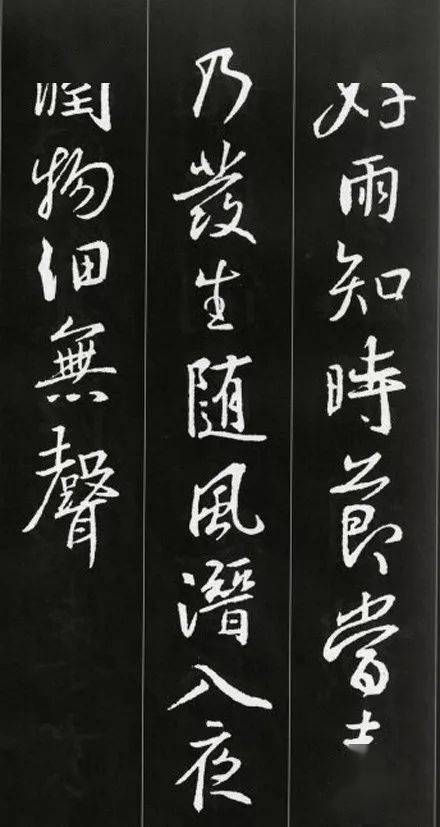 好雨知時節當
乃發生随風潛入夜
潤物細無聲